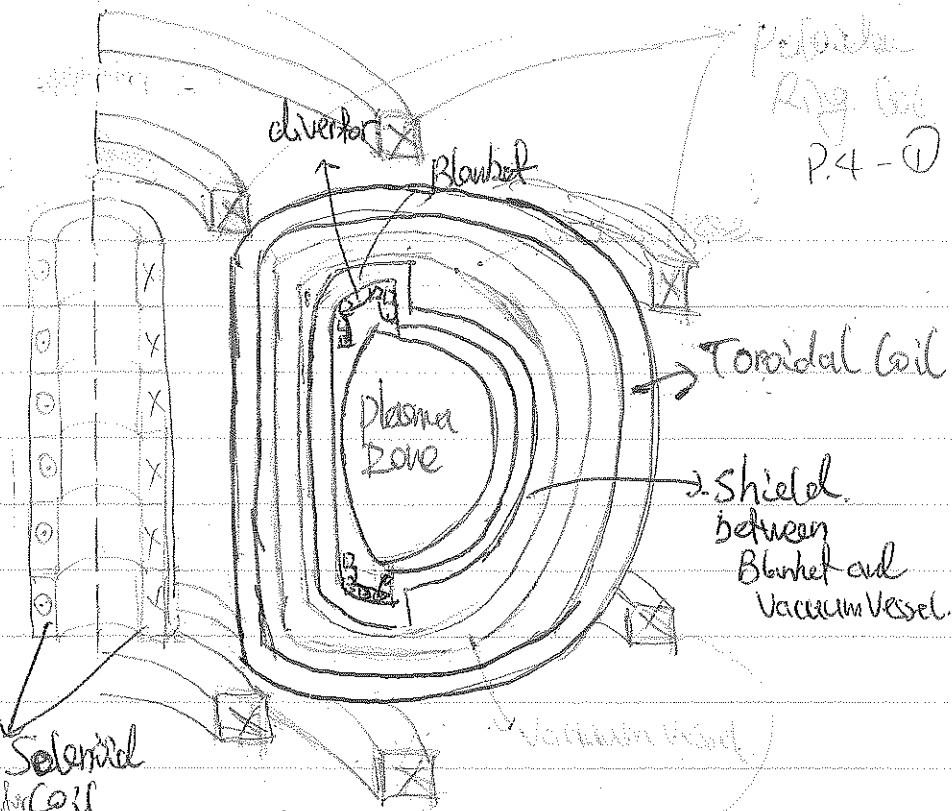 Poloidal
Ring Coil
P.4 - ①
divertor
Blanket
Toroidal Coil
plasma
Zone
Shield
between
Blanket and
Vacuum Vessel.
Vacuum Vessel
Solenoid
Coil